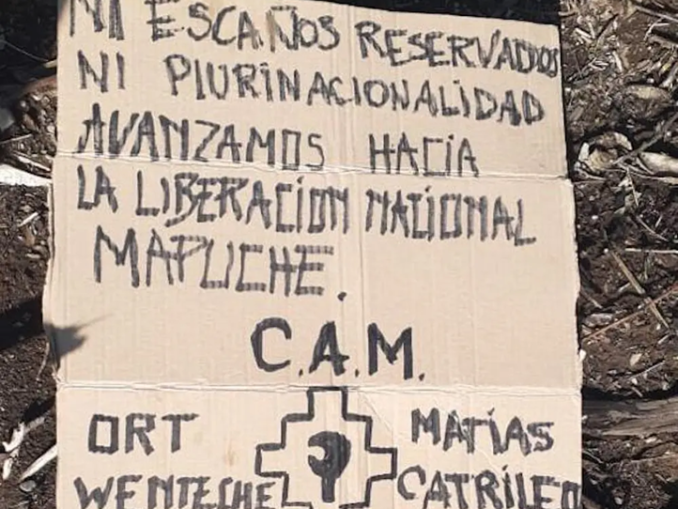 NI ESCAÑOS RESERVADOS
NI PLURINACIONALIDAD
AVANZAMOS HACIA
LA LIBERACION NACIONAL
MAPUCHE.
C.A.M.
ORT MATÍAS
WENTECHE CATRILEO